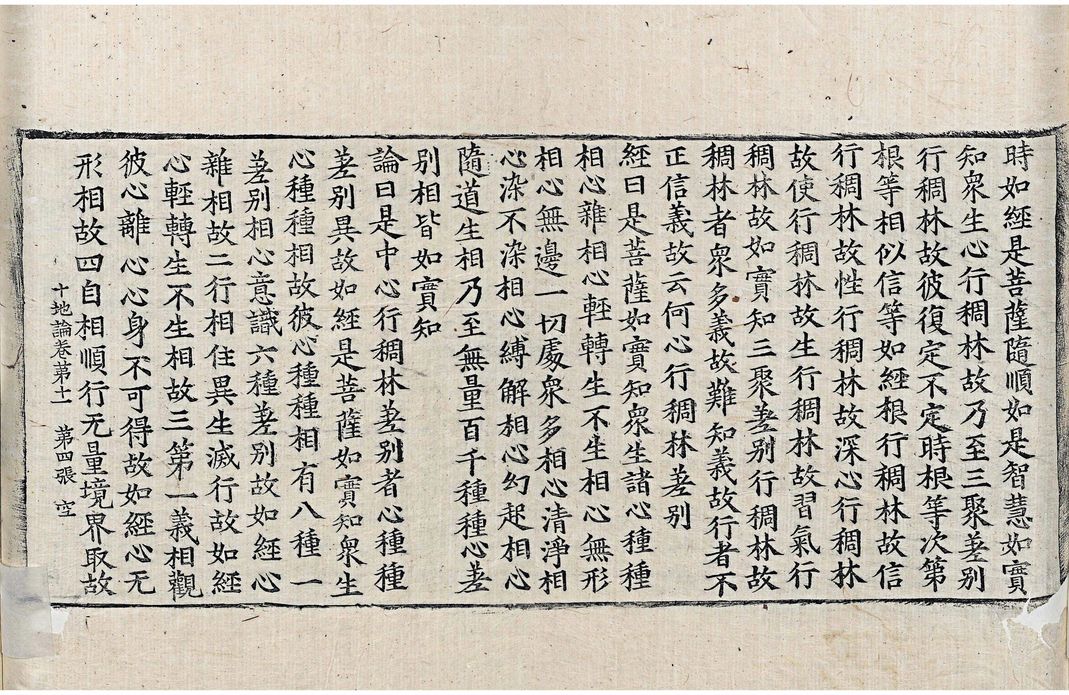 時如經是菩薩隨順如是智慧如實
知衆生心行稠林故乃至三聚差別
行稠林故彼復定不定時根等次第
根等相似信等如經根行稠林故信
行稠林故性行稠林故深心行稠林
故使行稠林故生行稠林故習氣行
稠林故如實知三聚差別行稠林故
稠林者衆多義故難知義故行者不
正信義故云何心行稠林差別
經曰是菩薩如實知衆生諸心種種
相心雜相心輕轉生不生相心無形
相心無邊一切處衆多相心清淨相
心染不染相心縛解相心幻起相心
隨道生相乃至無量百千種種心差
別相皆如實知
論曰是中心行稠林差別者心種種
差別異故如經是菩薩如實知衆生
心種種相故彼心種種相有八種一
差別相心意識六種差別故如經心
雜相故二行相住異生滅行故如經
心輕轉生不生相故三第一義相觀
彼心離心心身不可得故如經心无
形相故四自相順行无量境界取故
十地論卷第十一 第四張 空